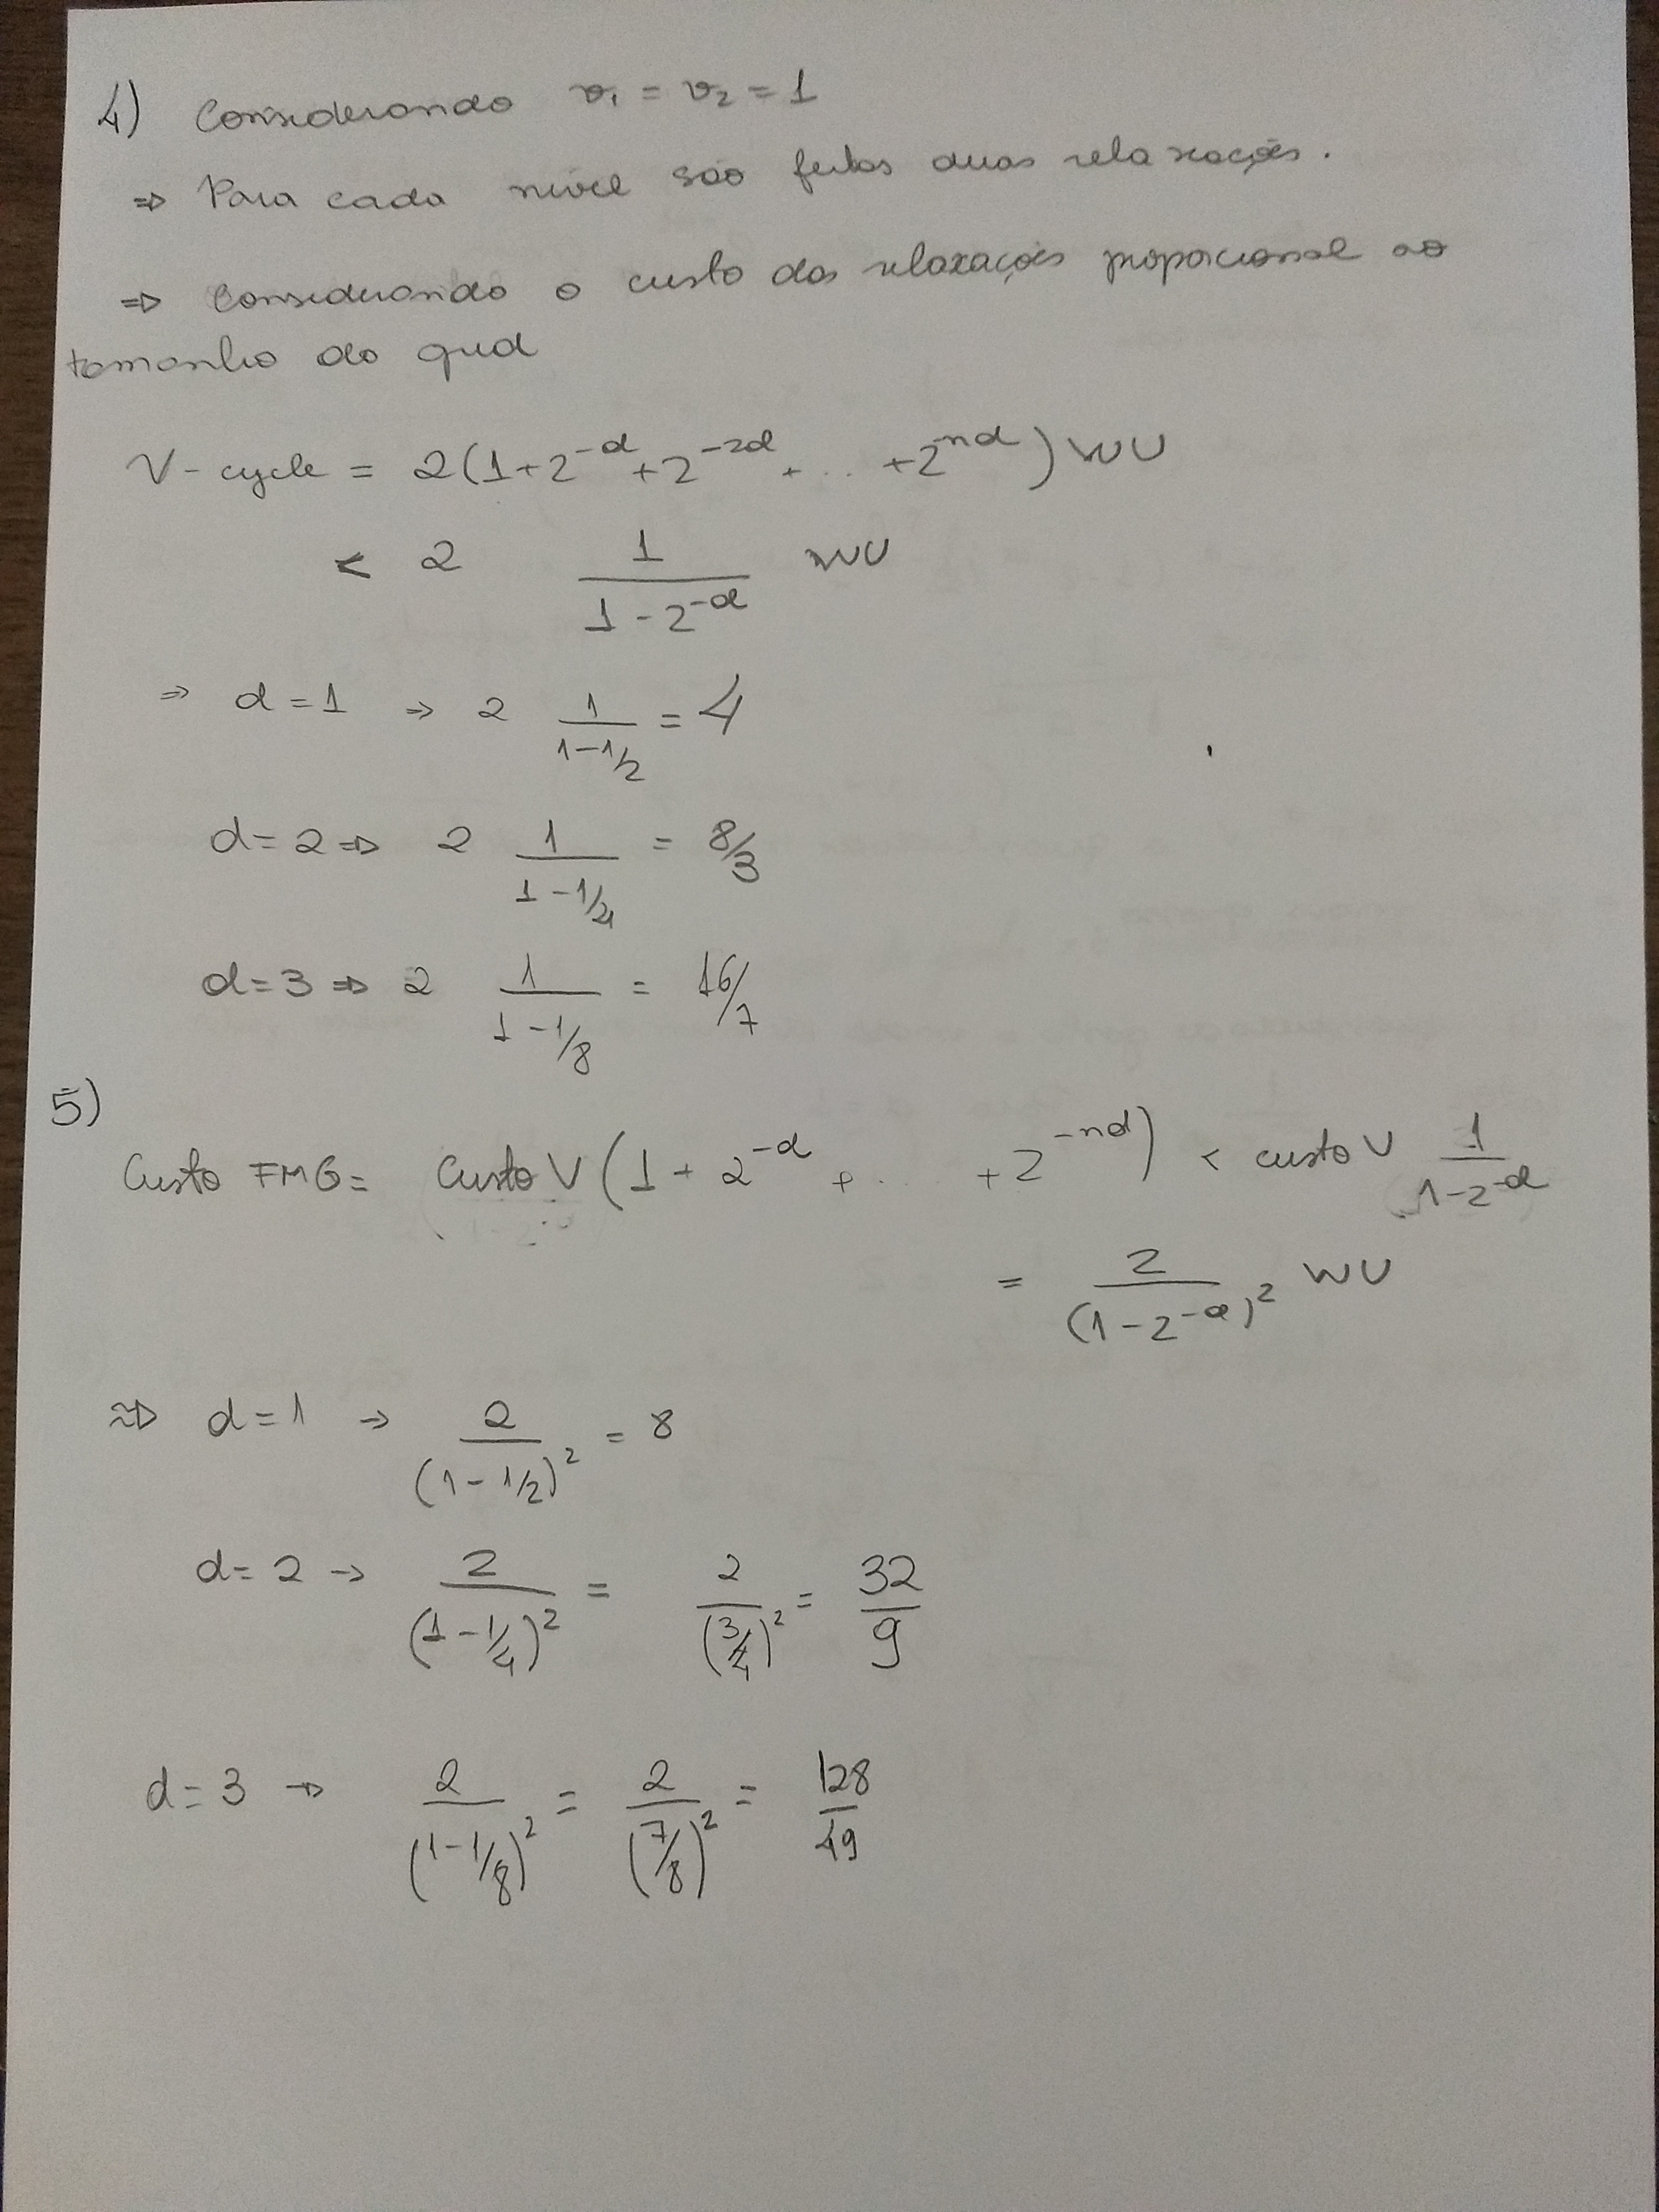 4) Considerando v₁ = v₂ = 1
⇒ Para cada nível são feitas duas relaxações.
⇒ Considerando o custo das relaxações proporcional ao
tamanho do grid
V-cycle = 2(1+2^{-d}+2^{-2d}+...+2^{-nd}) WU
< 2 \frac{1}{1-2^{-d}} WU
⇒ d=1 → 2 \frac{1}{1-1/2} = 4
d=2 ⇒ 2 \frac{1}{1-1/4} = 8/3
d=3 ⇒ 2 \frac{1}{1-1/8} = 16/7
5)
Custo FMG = Custo V (1+2^{-d}+...+2^{-nd}) < custo V \frac{1}{1-2^{-d}}
= \frac{2}{(1-2^{-d})^2} WU
⇒ d=1 → \frac{2}{(1-1/2)^2} = 8
d=2 → \frac{2}{(1-1/4)^2} = \frac{2}{(3/4)^2} = \frac{32}{9}
d=3 → \frac{2}{(1-1/8)^2} = \frac{2}{(7/8)^2} = \frac{128}{49}